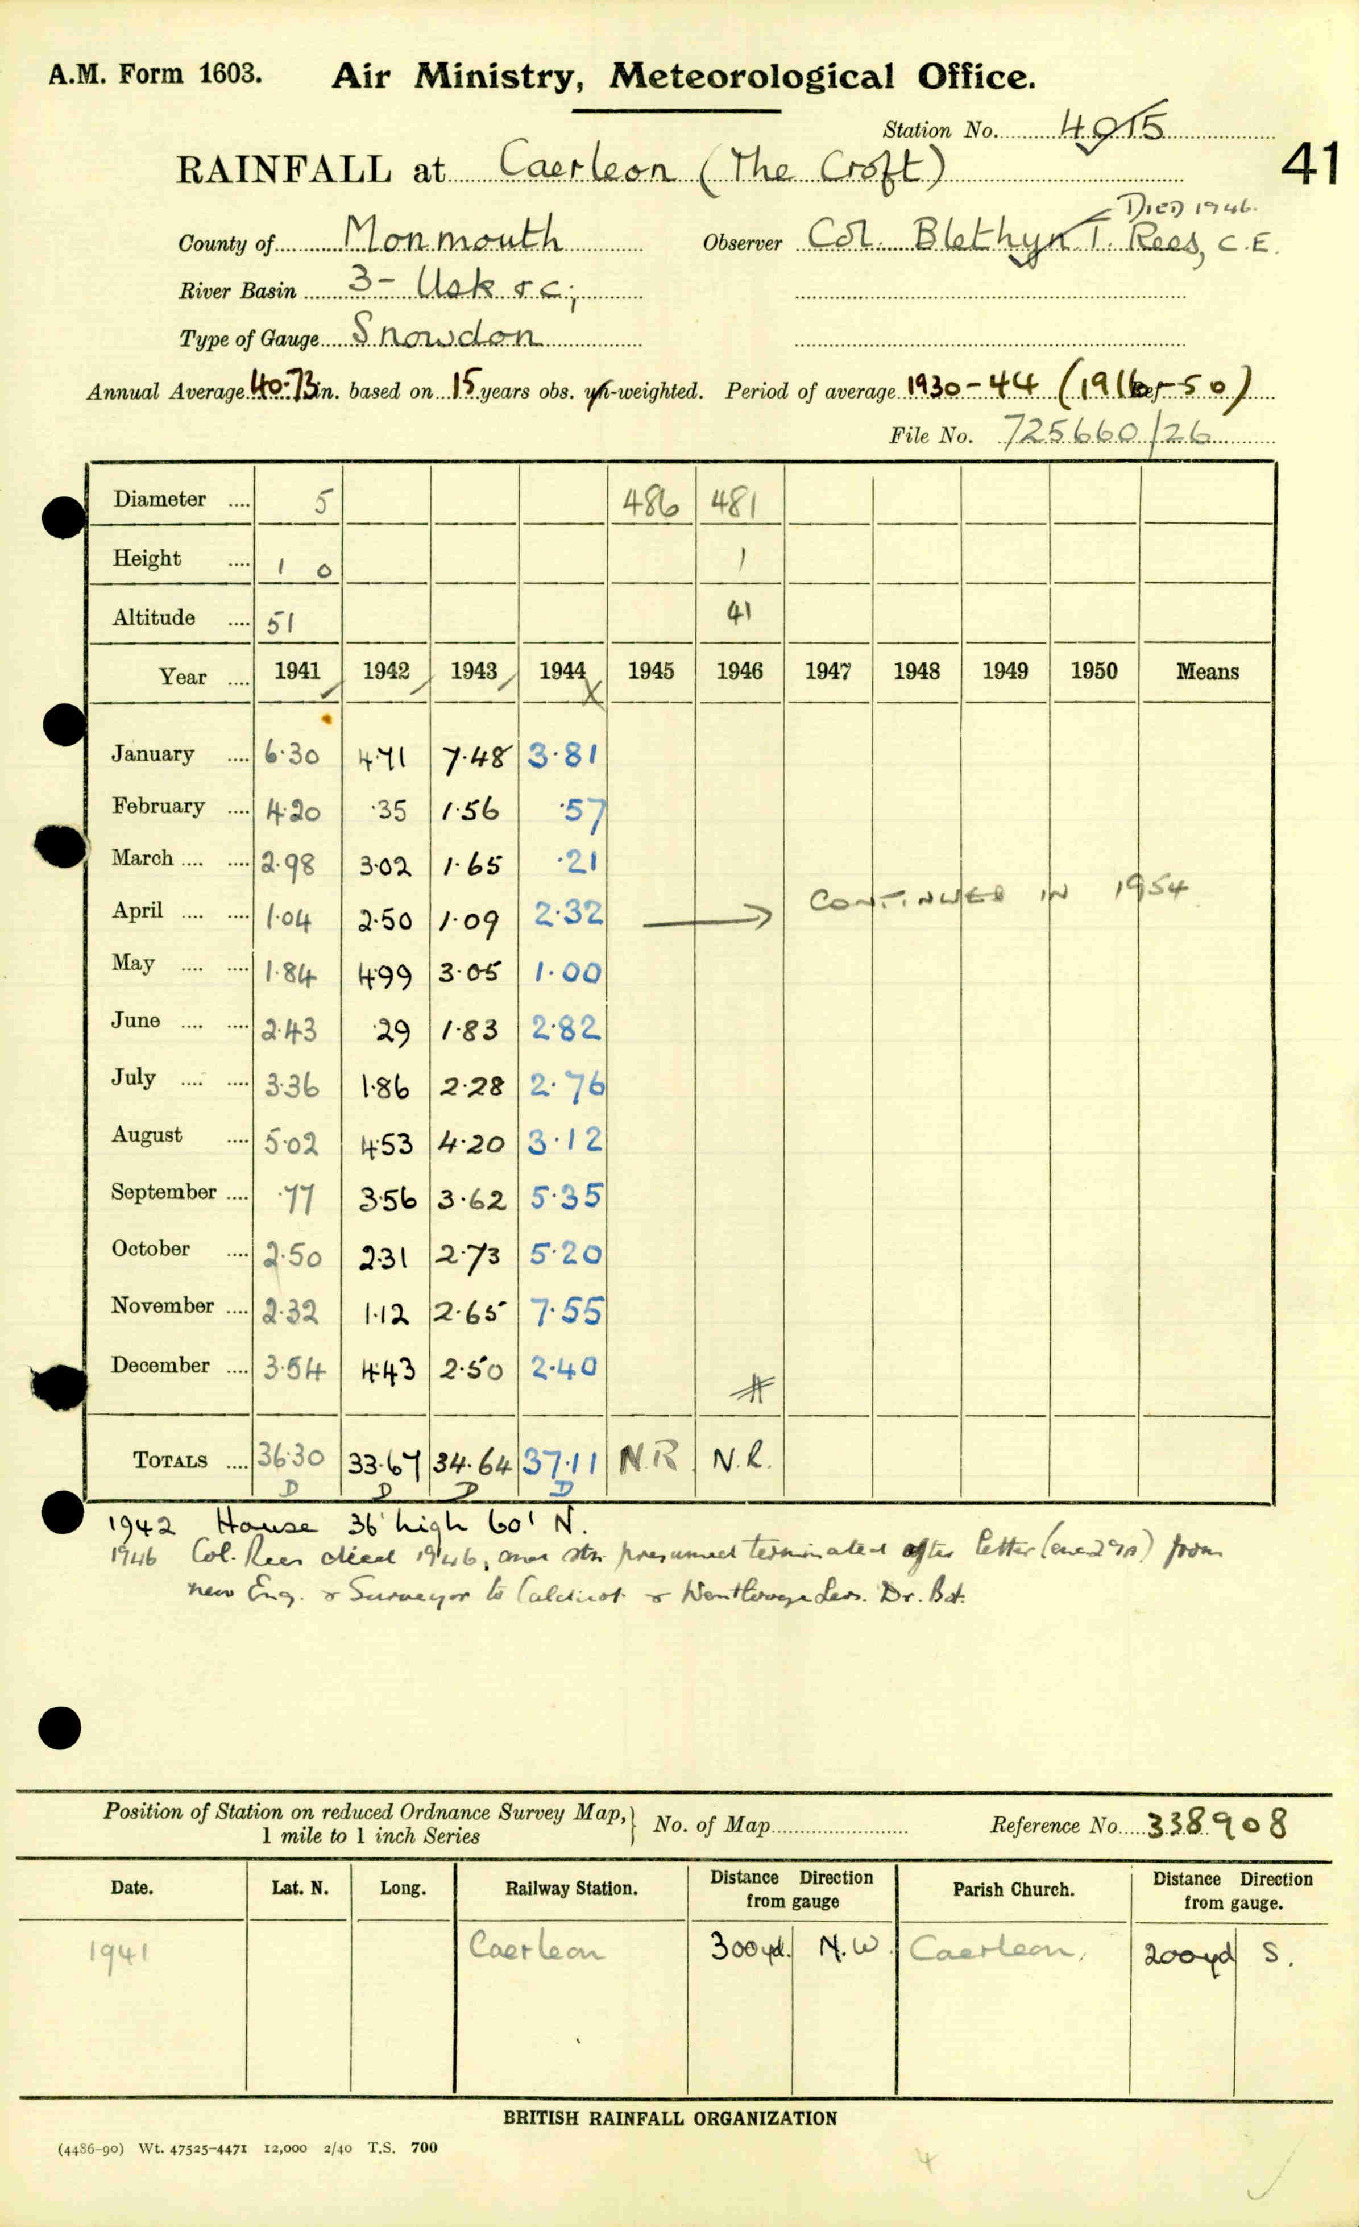 A.M. Form 1603. Air Ministry, Meteorological Office.
Station No. 4015
41
RAINFALL at Caerleon (The Croft)
DIED 1946.
County of Monmouth Observer Col. Blethyn T. Rees, C.E.
River Basin 3- Usk &c;
Type of Gauge Snowdon
Annual Average 40.73 in. based on 15 years obs. un-weighted. Period of average 1930-44 (1916-50)
File No. 725660/26
Diameter .... 5 486 481
Height .... 1 0 1
Altitude .... 51 41
Year .... 1941 1942 1943 1944 1945 1946 1947 1948 1949 1950 Means
X
January .... 6.30 4.71 7.48 3.81
February .... 4.20 .35 1.56 .57
March .... .... 2.98 3.02 1.65 .21
April .... .... 1.04 2.50 1.09 2.32 CONTINUED IN 1954
May .... .... 1.84 4.99 3.05 1.00
June .... .... 2.43 .29 1.83 2.82
July .... .... 3.36 1.86 2.28 2.76
August .... 5.02 4.53 4.20 3.12
September .... .77 3.56 3.62 5.35
October .... 2.50 2.31 2.73 5.20
November .... 2.32 1.12 2.65 7.55
December .... 3.54 4.43 2.50 2.40
TOTALS .... 36.30 33.67 34.64 37.11 N.R. N.R.
D D D D
1942 House 36' high 60' N.
1946 Col. Rees died 1946, and stn presumed terminated after letter from
new Eng. & Surveyor to Caldicot & Wentlooge Levs. Dr. Bd.
Position of Station on reduced Ordnance Survey Map, 1 mile to 1 inch Series No. of Map Reference No. 338908
Date. Lat. N. Long. Railway Station. Distance Direction from gauge Parish Church. Distance Direction from gauge.
1941 Caerleon 300yd. N.W. Caerleon. 200yd S.
BRITISH RAINFALL ORGANIZATION
(4486-90) Wt. 47525-4471 12,000 2/40 T.S. 700
4